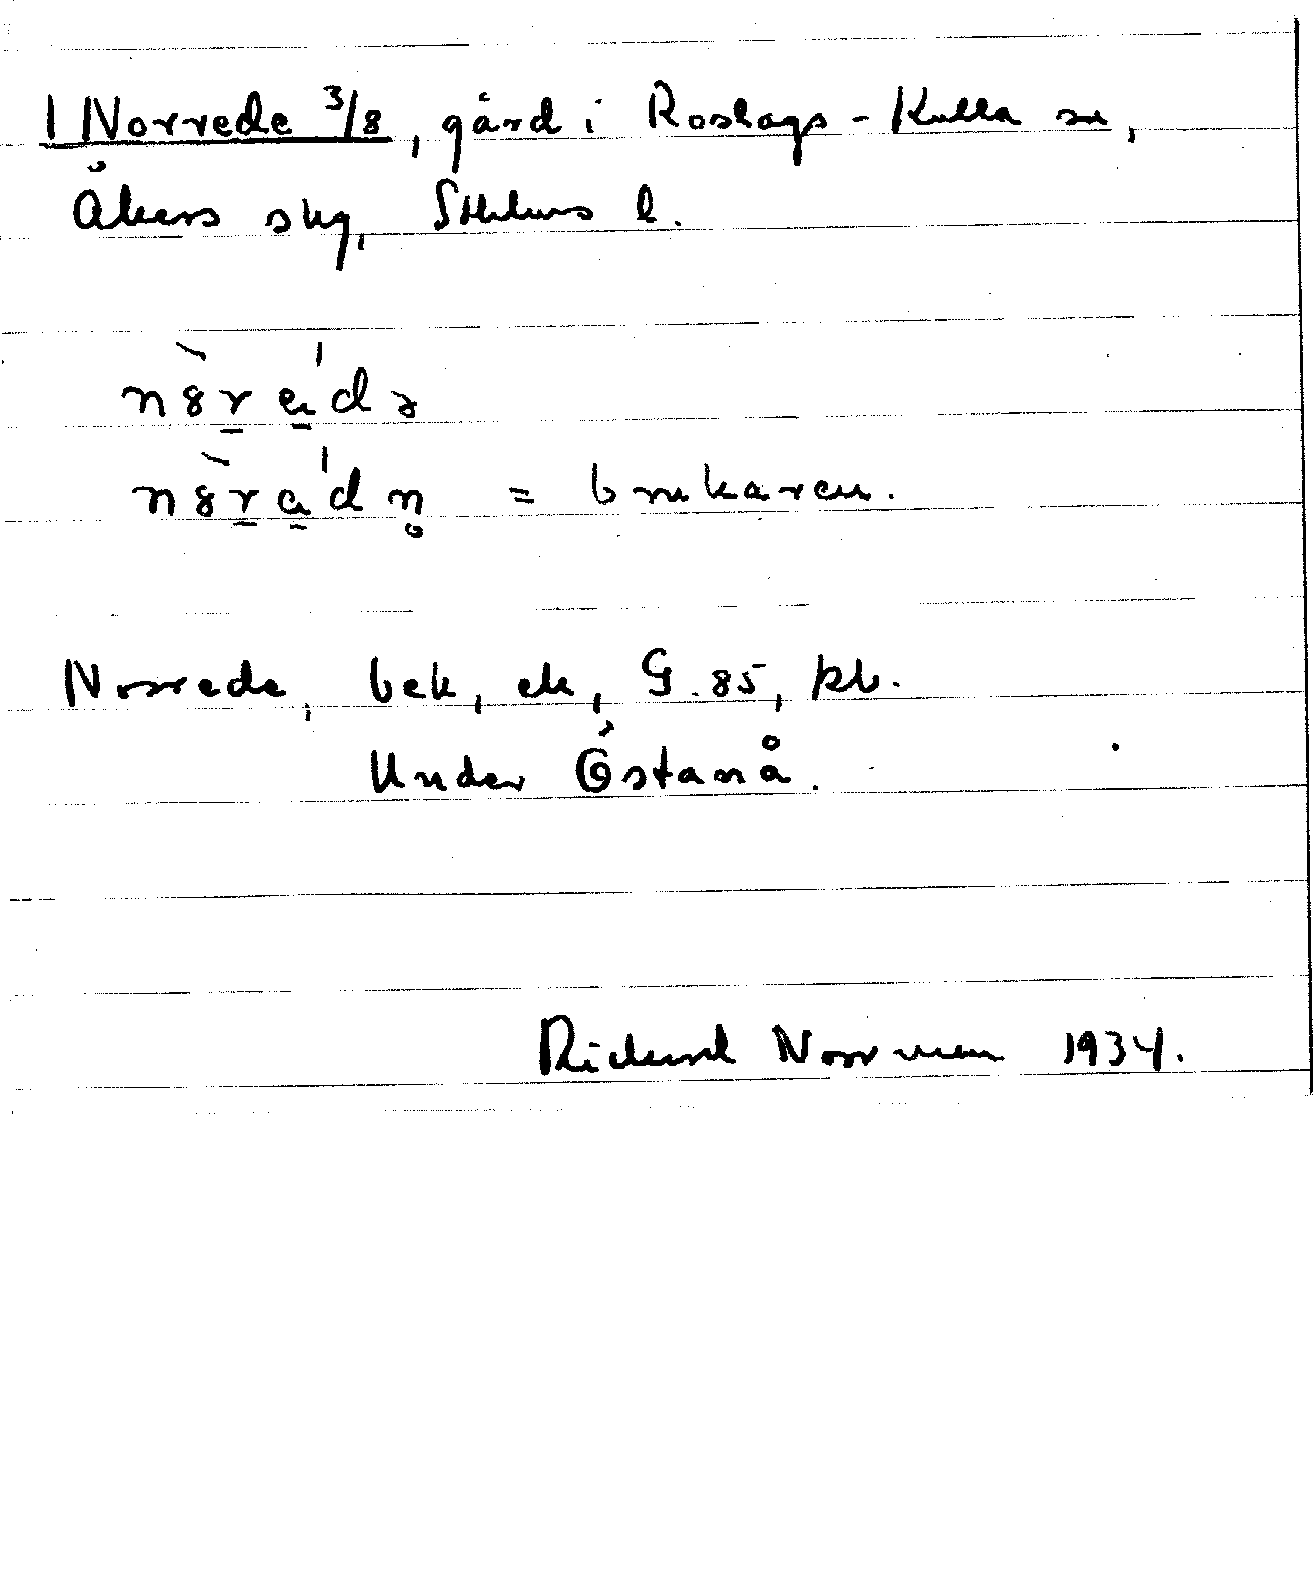 1 Norrede 3/8, gård i Roslags-Kulla sn,
Åkers skg, Sthlms l.
nȣ̀rade
nȣ̀radn̥ = brukaren.
Norrede, bek, ek, G.85, kb.
Under Östanå.
Rickard Norrman 1934.